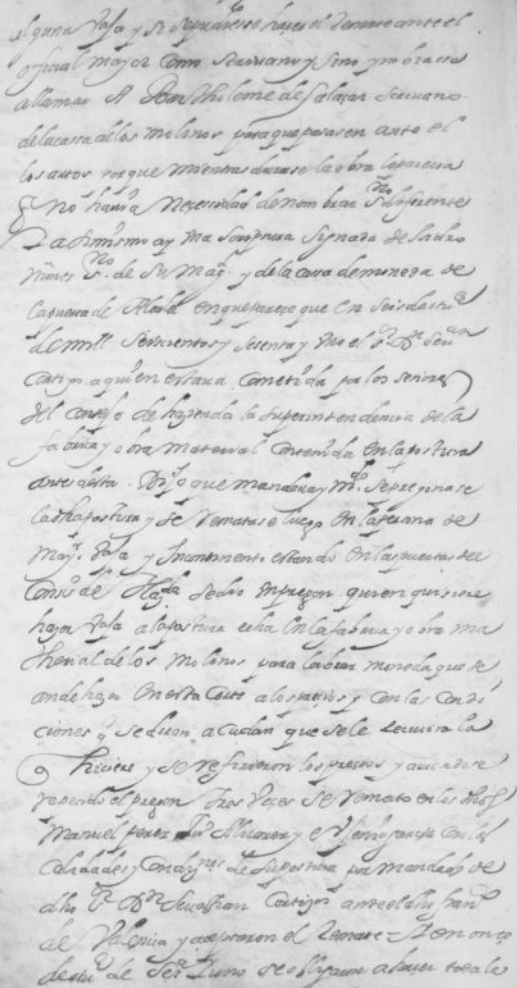 alguna vaja y si se pudiere hacer el Remate ante el
oficial mayor como scriuano y sino ymbiasse
a llamar A Barthilome de Salaçar scriuano
de la casa de los molinos para que pasasen ante el
los autos porque mientras durase la obra le parecia
no hauia Necesidad de nombrar sno diferente
y a diuimismo ay una scriptura signada de
sno de Su Magd y de la casa de moneda de
la puerta de Alcala en que pareze que en seis de
de mill seiscientos y sesenta y uno el sr Dn Seuan
Cortiço a quien estaua cometida por los señores
del Consejo de hazienda la Superintendencia de la
fabrica y obra material contenida en la postura
antes desta. Dijo que mandaua y mdo se pregonase
la dha postura y se Rematase luego en la persona de
mayr vaja y Incontinenti estando en las puertas del
Conso de Hazda se dio un pregon quien quisiere
hazer vaja a la postura echa en la fabrica y obra ma
therial de los molinos para labrar moneda que se
an de hazer en esta Corte a los precios y con las condi
ciones q se diran acudan que se le Recuira la
hiciere y se refirieron los precios y auiendose
repetido el pregon tres Vezes se Remato en los dhos
Manuel perez y en con las
Calidades y Condiznes de su postura por mandado de
dho sr Dn Seuastian Cortiços ante el dho frando
de Valencia y açeptaron el Remate = Y en onçe
de de sesa y uno se obligaron a hacer toda la